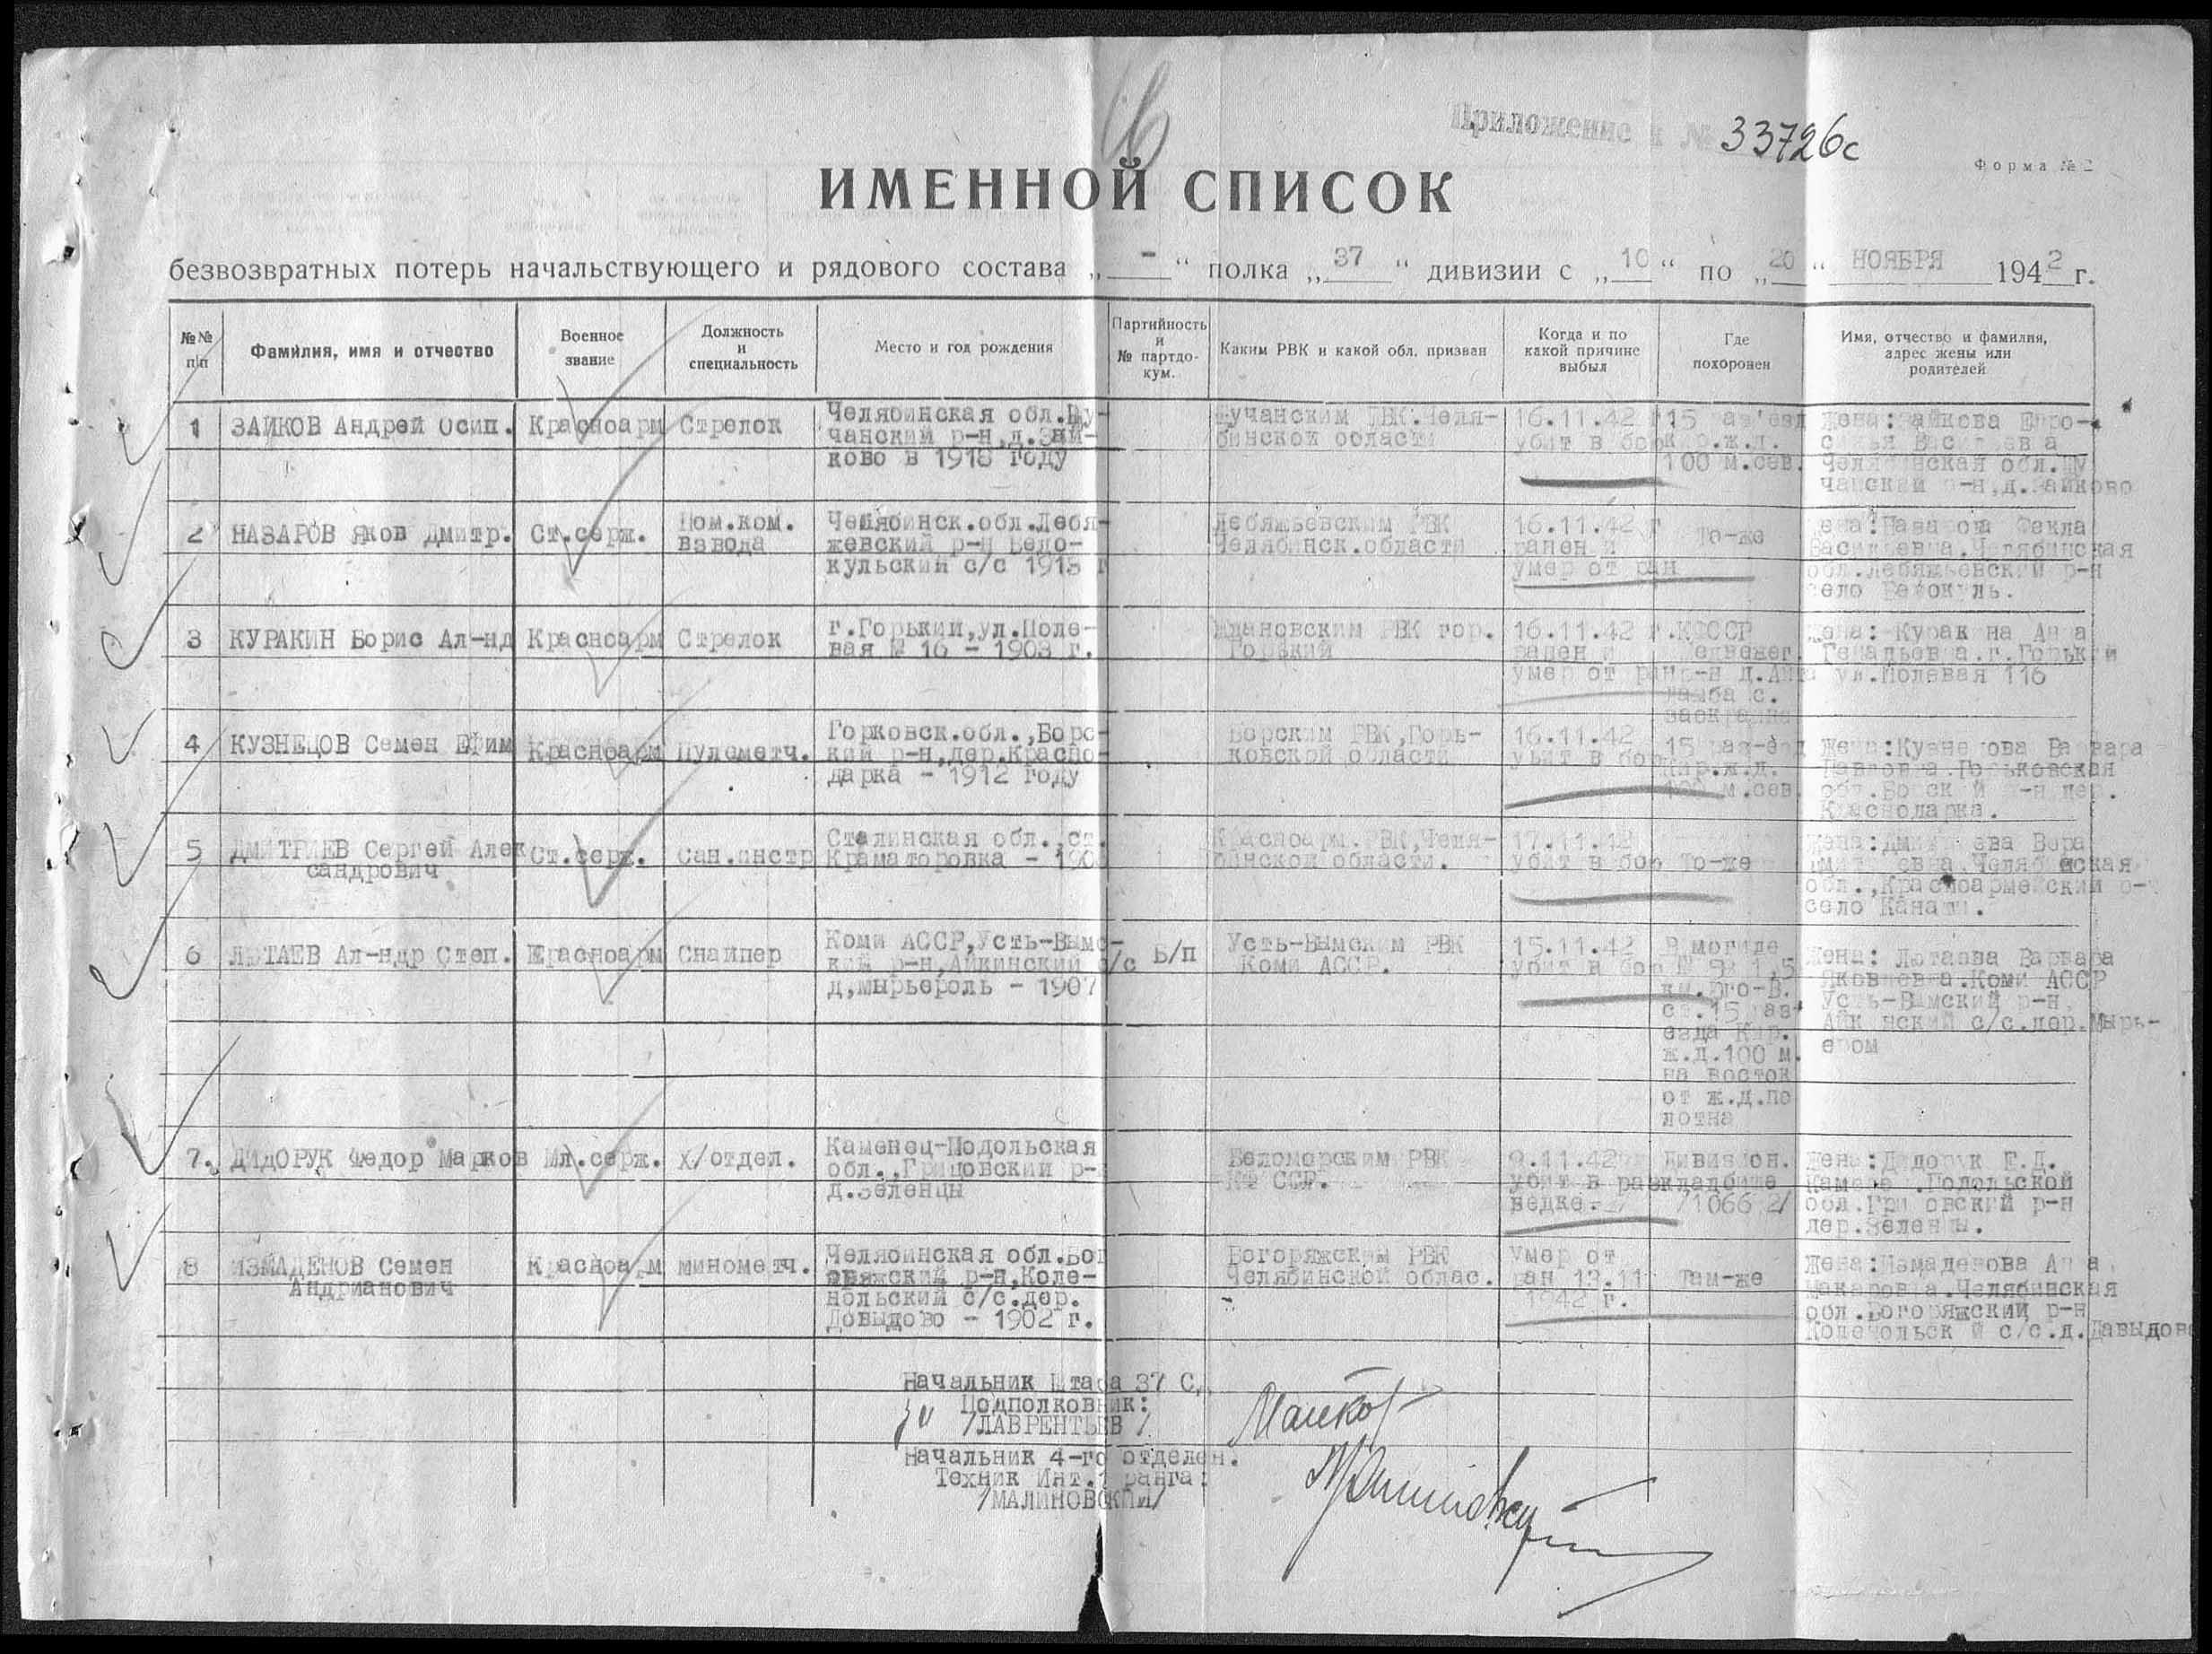 Приложение к № 33726с
Форма № 2
ИМЕННОЙ СПИСОК
безвозвратных потерь начальствующего и рядового состава „ - “ полка „ 37 “ дивизии с „ 10 “ по „ 20 “ НОЯБРЯ 1942 г.
№№ п/п
Фамилия, имя и отчество
Военное звание
Должность и специальность
Место и год рождения
Партийность и № партдокум.
Каким РВК и какой обл. призван
Когда и по какой причине выбыл
Где похоронен
Имя, отчество и фамилия, адрес жены или родителей
1
ЗАЙКОВ Андрей Осип.
Красноарм
Стрелок
Челябинская обл.Шу-
чанский р-н,д.Зай-
ково в 1918 году
Шучанским РВК.Челя-
бинской области
16.11.42 г
убит в бою
15 раз'езд
К р.ж.д.
100 м.сев.
Жена:Зайкова Евро-
синья Васильевна
Челябинская обл.Шу
чанский р-н,д.Зайково
2
НАЗАРОВ Яков Дмитр.
Ст.серж.
Пом.ком.
взвода
Челябинск.обл.Лебя-
жевский р-н
кульский с/с 1913 г
Лебяжьевским РВК
Челябинск.области
16.11.42 г
ранен и
умер от ран
То-же
Жена:Назарова Фекла
Васильевна.Челябинская
обл.Лебяжьевский р-н
село
3
КУРАКИН Борис Ал-нд
Красноарм
Стрелок
г.Горький,ул.Поле-
вая № 16 - 1903 г.
Ждановским РВК гор.
Горький
16.11.42 г.
ранен и
умер от ран
КФССР
Медвежег.
р-н
ламба с.
Жена: Куракина Анна
Генадьевна.г.Горький
ул.Полевая 116
4
КУЗНЕЦОВ Семен Ефим
Красноарм
Пулеметч.
Горковск.обл.,Борс-
кий р-н,дер.Красно-
дарка - 1912 году
Борским РВК,Горь-
ковской области
16.11.42
убит в бою
15 раз-езд
Кир.ж.д.
100 м.сев.
Жена:Кузнецова Варвара
Павловна.Горьковская
обл.Борский р-н дер.
Краснодарка.
5
ДМИТРИЕВ Сергей Алек
сандрович
Ст.серж.
Сан.инстр
Сталинская обл.,ст.
Краматоровка -
Красноарм.РВК,Челя-
бинской области.
17.11.42
убит в бою
То-же
Жена:Дмитриева Вера
Дмитриевна.Челябинская
обл.,Красноармейский
село
6
ЛЮТАЕВ Ал-ндр Степ.
Красноарм
Снайпер
Коми АССР,Усть-Вымс-
кий р-н,Айкинский с/с
д,мырьероль - 1907
Б/п
Усть-Вымским РВК
Коми АССР.
15.11.42
убит в бою
В могиле
№ 9 1,5
км.юго-В.
ст.15 раз-
езда Кир.
ж.д.100 м.
на восток
от ж.д.по
лотна
Жена: Лютаева Варвара
Яковлевна.Коми АССР
Усть-Вымский р-н
Айкинский с/с.дер.Мырь-
ером
7.
ДИДОРУК Федор Марков
Мл.серж.
Х/отдел.
Каменец-Подольская
обл.,Грицовский р-
д.Зеленцы
Беломорским РВК
КФ ССР.
9.11.42
убит в раз
ведке.
Дивизион.
кладбище
/1066 2/
Жена:Дидорук Е.Д.
Камене .Подольской
обл.Грицовский р-н
дер.Зеленцы.
8
ИЗМАДЕНОВ Семен
Андрианович
Красноарм
минометч.
Челябинская обл.Бог
оряжский р-н,Коле-
нольский с/с.дер.
Довыдово - 1902 г.
Богоряжским РВК
Челябинской облас.
Умер от
ран 13.11
1942 г.
Там-же
Жена:Измаденова Анна
Макаровна.Челябинская
обл.Богоряжский р-н
с/с.д.Давыдово
Начальник Штаба 37 С,
Подполковник:
/ЛАВРЕНТЬЕВ/
Начальник 4-го отделен.
Техник Инт.1 ранга:
/МАЛИНОВСКИЙ/